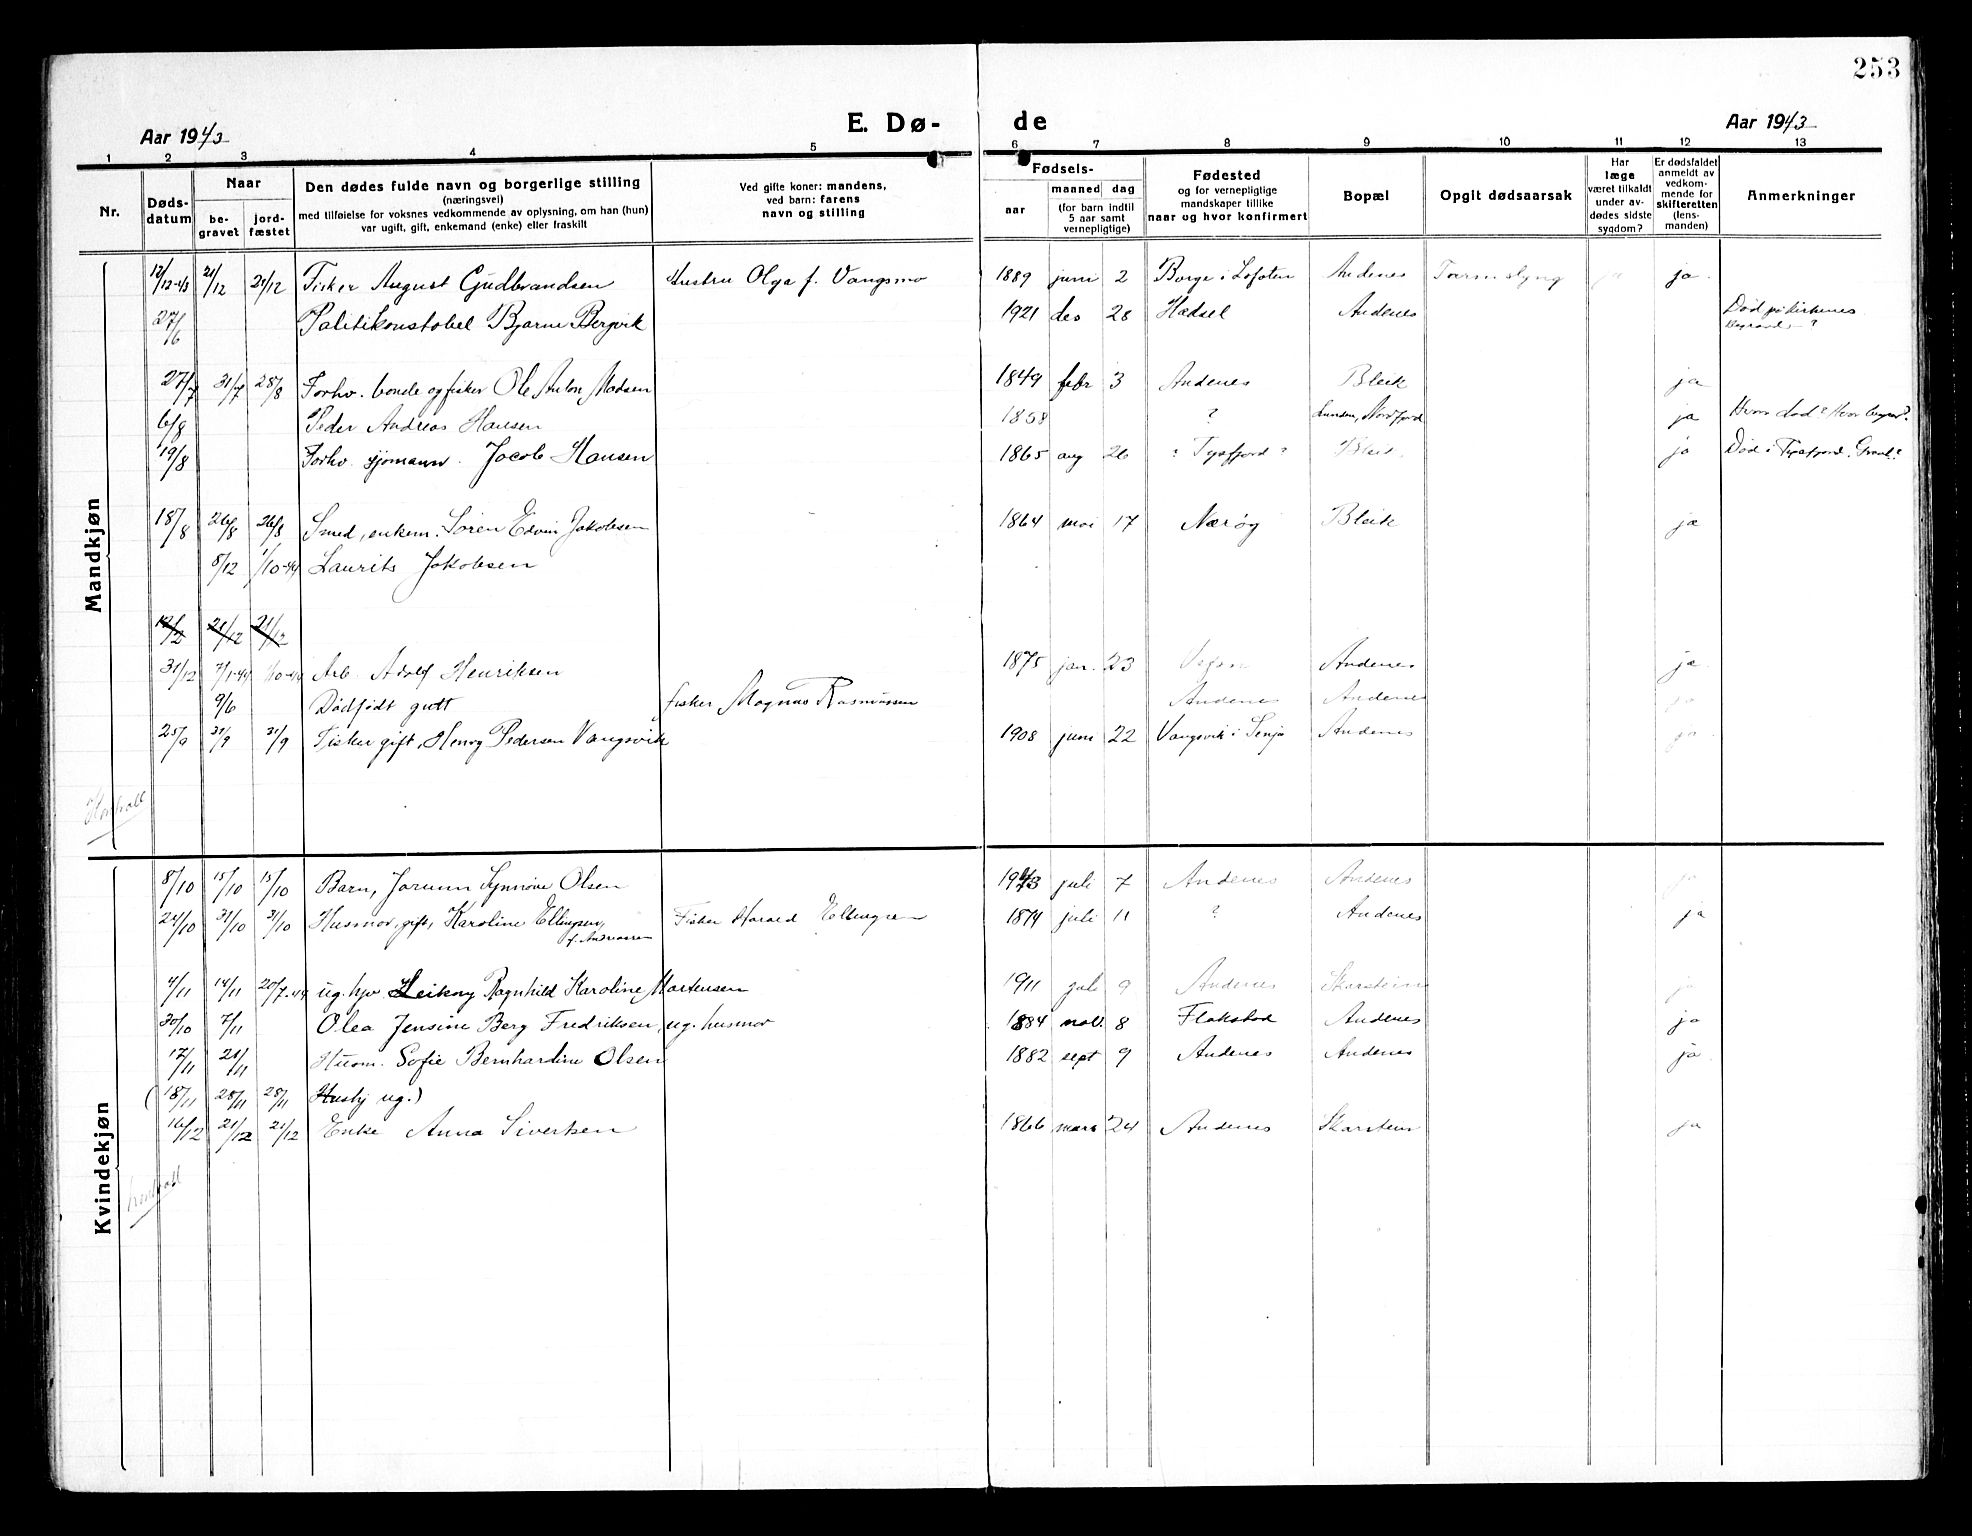 253
Aar 1943 E. Dø- de Aar 1943
1 2 3 4 5 6 7 8 9 10 11 12 13
Nr. Døds-datum Naar be-gravet jord-fæstet Den dødes fulde navn og borgerlige stilling (næringsvei) med tilføielse for voksnes vedkommende av oplysning, om han (hun) var ugift, gift, enkemand (enke) eller fraskilt Ved gifte koner: mandens, ved barn: farens navn og stilling Fødsels- aar maaned dag (for barn indtil 5 aar samt vernepligtige) Fødested og for vernepligtige mandskaper tillike naar og hvor konfirmert Bopæl Opgit dødsaarsak Har læge været tilkaldt under av-dødes sidste sygdom? Er dødsfaldet anmeldt av vedkom-mende for skifteretten (lens-manden) Anmerkninger
Mandkjøn
12/12-43 21/12 21/12 Fisker August Gudbrandsen Hustru Olga f. Vangsmo 1889 juni 2 Borge i Lofoten Andenes Tarmslyng ja ja
27/6 Politikonstabel Bjarne Bergvik 1921 des 28 Hadsel Andenes Død på Kirkenes
?
27/7 31/7 28/8 Forhv. bonde og fisker Ole Anton Madsen 1849 febr 3 Andenes Bleik ja
6/8 Peder Andreas Hansen 1858 ? Lunden, Nordfjord ja Hvor død? Hvor begrav?
19/8 Forhv. sjømann. Jacob Hansen 1865 aug 26 ? Tysfjord? Bleik ja Død i Tysfjord. Gravl?
18/8 26/8 26/8 Smed, enkem. Søren Edvin Jakobsen 1864 mai 17 Nærøy Bleik ja
8/12 1/10-44 Laurits Jakobsen
12/12 21/12 21/12
31/12 7/1-44 1/10-44 Arb. Adolf Henriksen 1875 jan. 23 Vefsn Andenes ja
9/6 Dødfødt gutt fisker Magnus Rasmussen Andenes Andenes ja
25/9 31/9 31/9 Fisker gift, Henry Pedersen Vangsvik 1908 juni 22 Vangsvik i Senja Andenes ja
Kontroll
Kvindekjøn
8/10 15/10 15/10 Barn, Jorunn Synnøve Olsen 1943 juli 7 Andenes Andenes ja
24/10 31/10 31/10 Husmor, gift, Karoline Ellingsen, Fisker Harald Ellingsen 1874 juli 11 ? Andenes ja
f. Andreassen
4/11 14/11 20/7-44 ug. hjv Leikny Ragnhild Karoline Martensen 1911 juli 9 Andenes Skarstein ja
30/10 7/11 Olea Jensine Berg Fredriksen, ug. husmor 1884 nov. 8 Flakstad Andenes ja
17/11 21/11 Husm. Sofie Bernhardine Olsen 1882 sept 9 Andenes Andenes ja
(18/11 28/11 28/11 Husbj ug.)
16/12 21/12 21/12 Enke Anna Sivertsen 1866 mars 24 Andenes Skarstein ja
kontroll